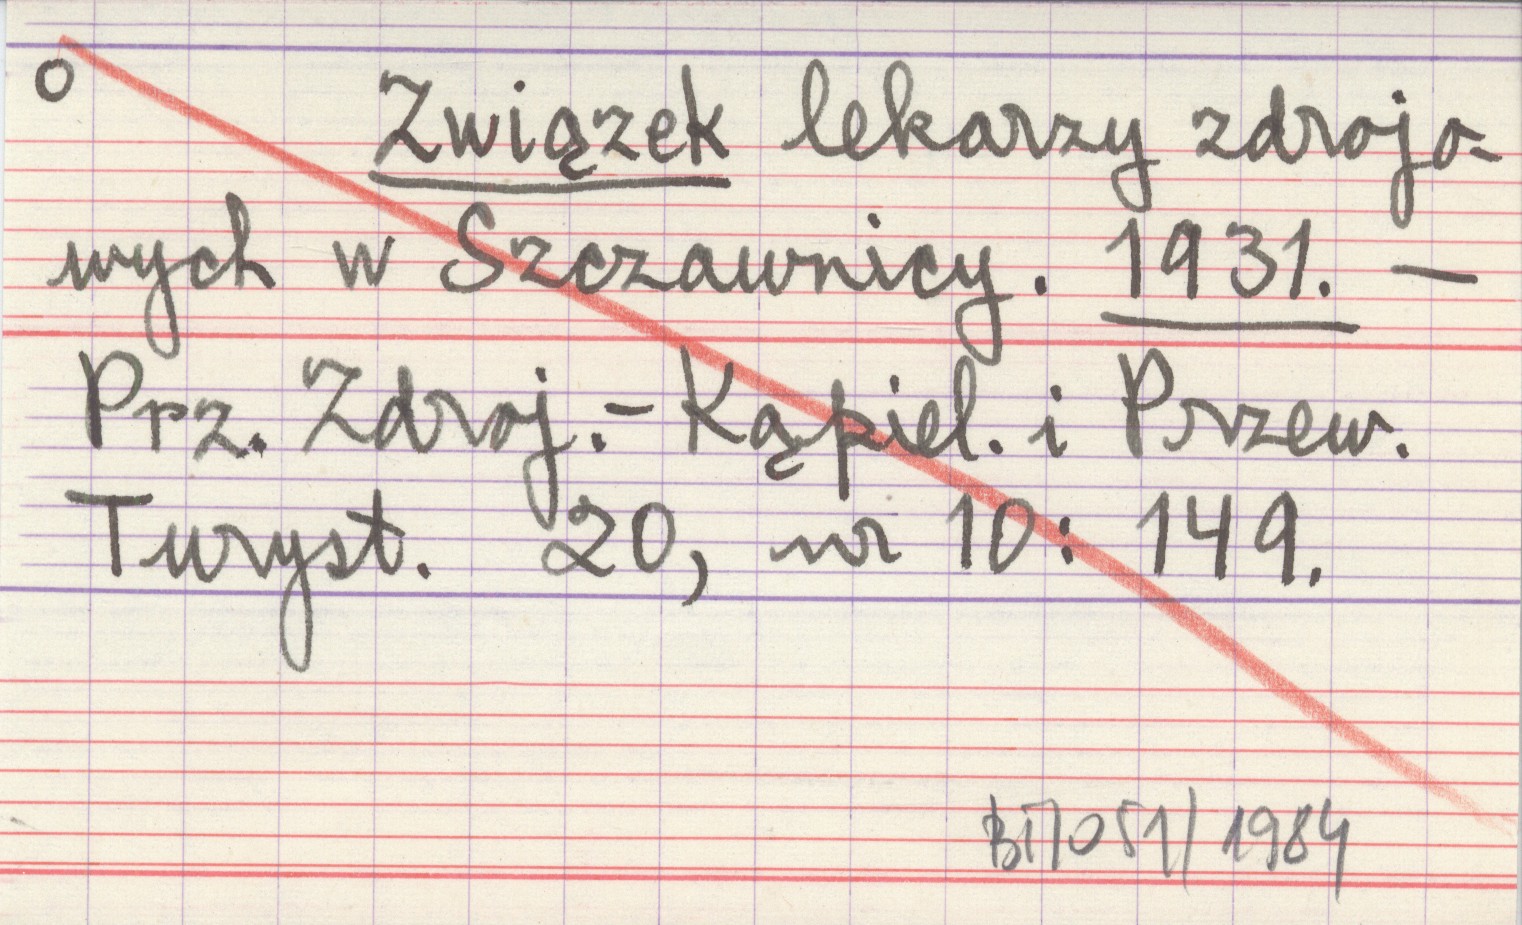 o Związek lekarzy zdrojo-
wych w Szczawnicy. 1931. —
Prz. Zdroj.-Kąpiel. i Przew.
Turyst. 20, nr 10: 149.
1984